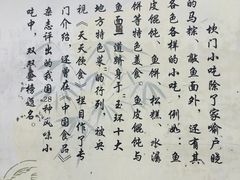 坎门小吃除了家喻户晓
的马粽、敲鱼面外，还有
各色各样的小吃，例如：鱼
皮馄饨、鱼饼、松糕、水潺
饼等特色美食。鱼皮馄饨与
鱼面一道跻身于“玉环十大
地方特色菜”的行列，被央
视《天天饮食》栏目作了专
门介绍，还曾在《中国食品》
杂志评出的我国28种风味小
吃中，双双登榜题名。